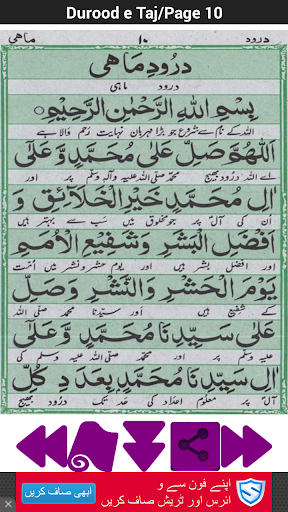 Durood e Taj/Page 10
درود ۱۰ ماهی
درودِ ماهی
درود ماہی
بِسْمِ اللهِ الرَّحْمٰنِ الرَّحِيْمِ
اللہ کے نام سے شروع جو بڑا مہربان نہایت رحم والا ہے
اَللّٰهُمَّ صَلِّ عَلٰى مُحَمَّدٍ وَّ عَلٰى
اے اللہ درود بھیج محمد صلی اللہ علیہ وآلہ وسلم پر اور
اٰلِ مُحَمَّدٍ خَيْرِ الْخَلَآئِقِ وَ
ان کی آل پر جو مخلوق میں سب سے بہتر ہیں
اَفْضَلِ الْبَشَرِ وَشَفِيْعِ الْاُمَمِ
اور افضل بشر ہیں اور یوم حشر و نشر میں اُمّت
يَوْمَ الْحَشْرِ وَالنَّشْرِ وَصَلِّ
کے شفیع ہیں اور سیدنا محمد صلی اللہ
عَلٰى سَيِّدِنَا مُحَمَّدٍ وَّ عَلٰى
علیہ وسلم پر اور سیدنا محمد صلی اللہ علیہ وسلم کی
اٰلِ سَيِّدِنَا مُحَمَّدٍ بِعَدَدِ كُلِّ
آل پر معلوم اعداد کی حد تک درود بھیج
اپنے فون سے و
ائرس اور ٹریش صاف کریں
ابھی صاف کریں